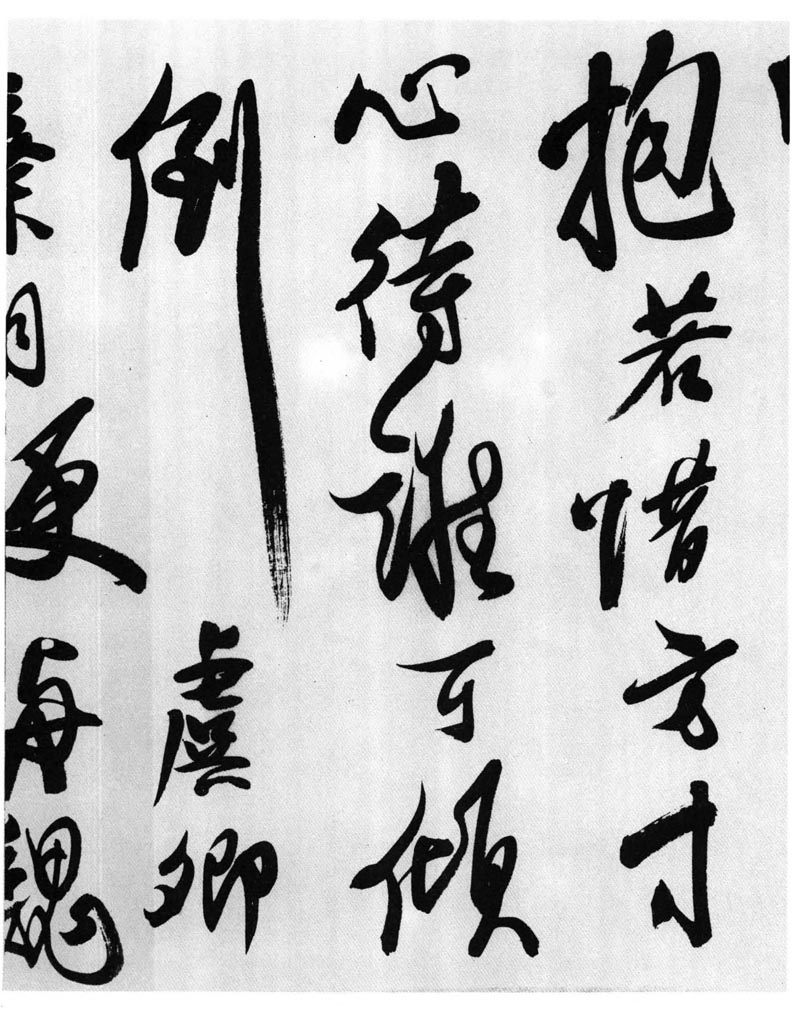 抱若惜方寸
心待誰可傾
倒虞卿
與魏